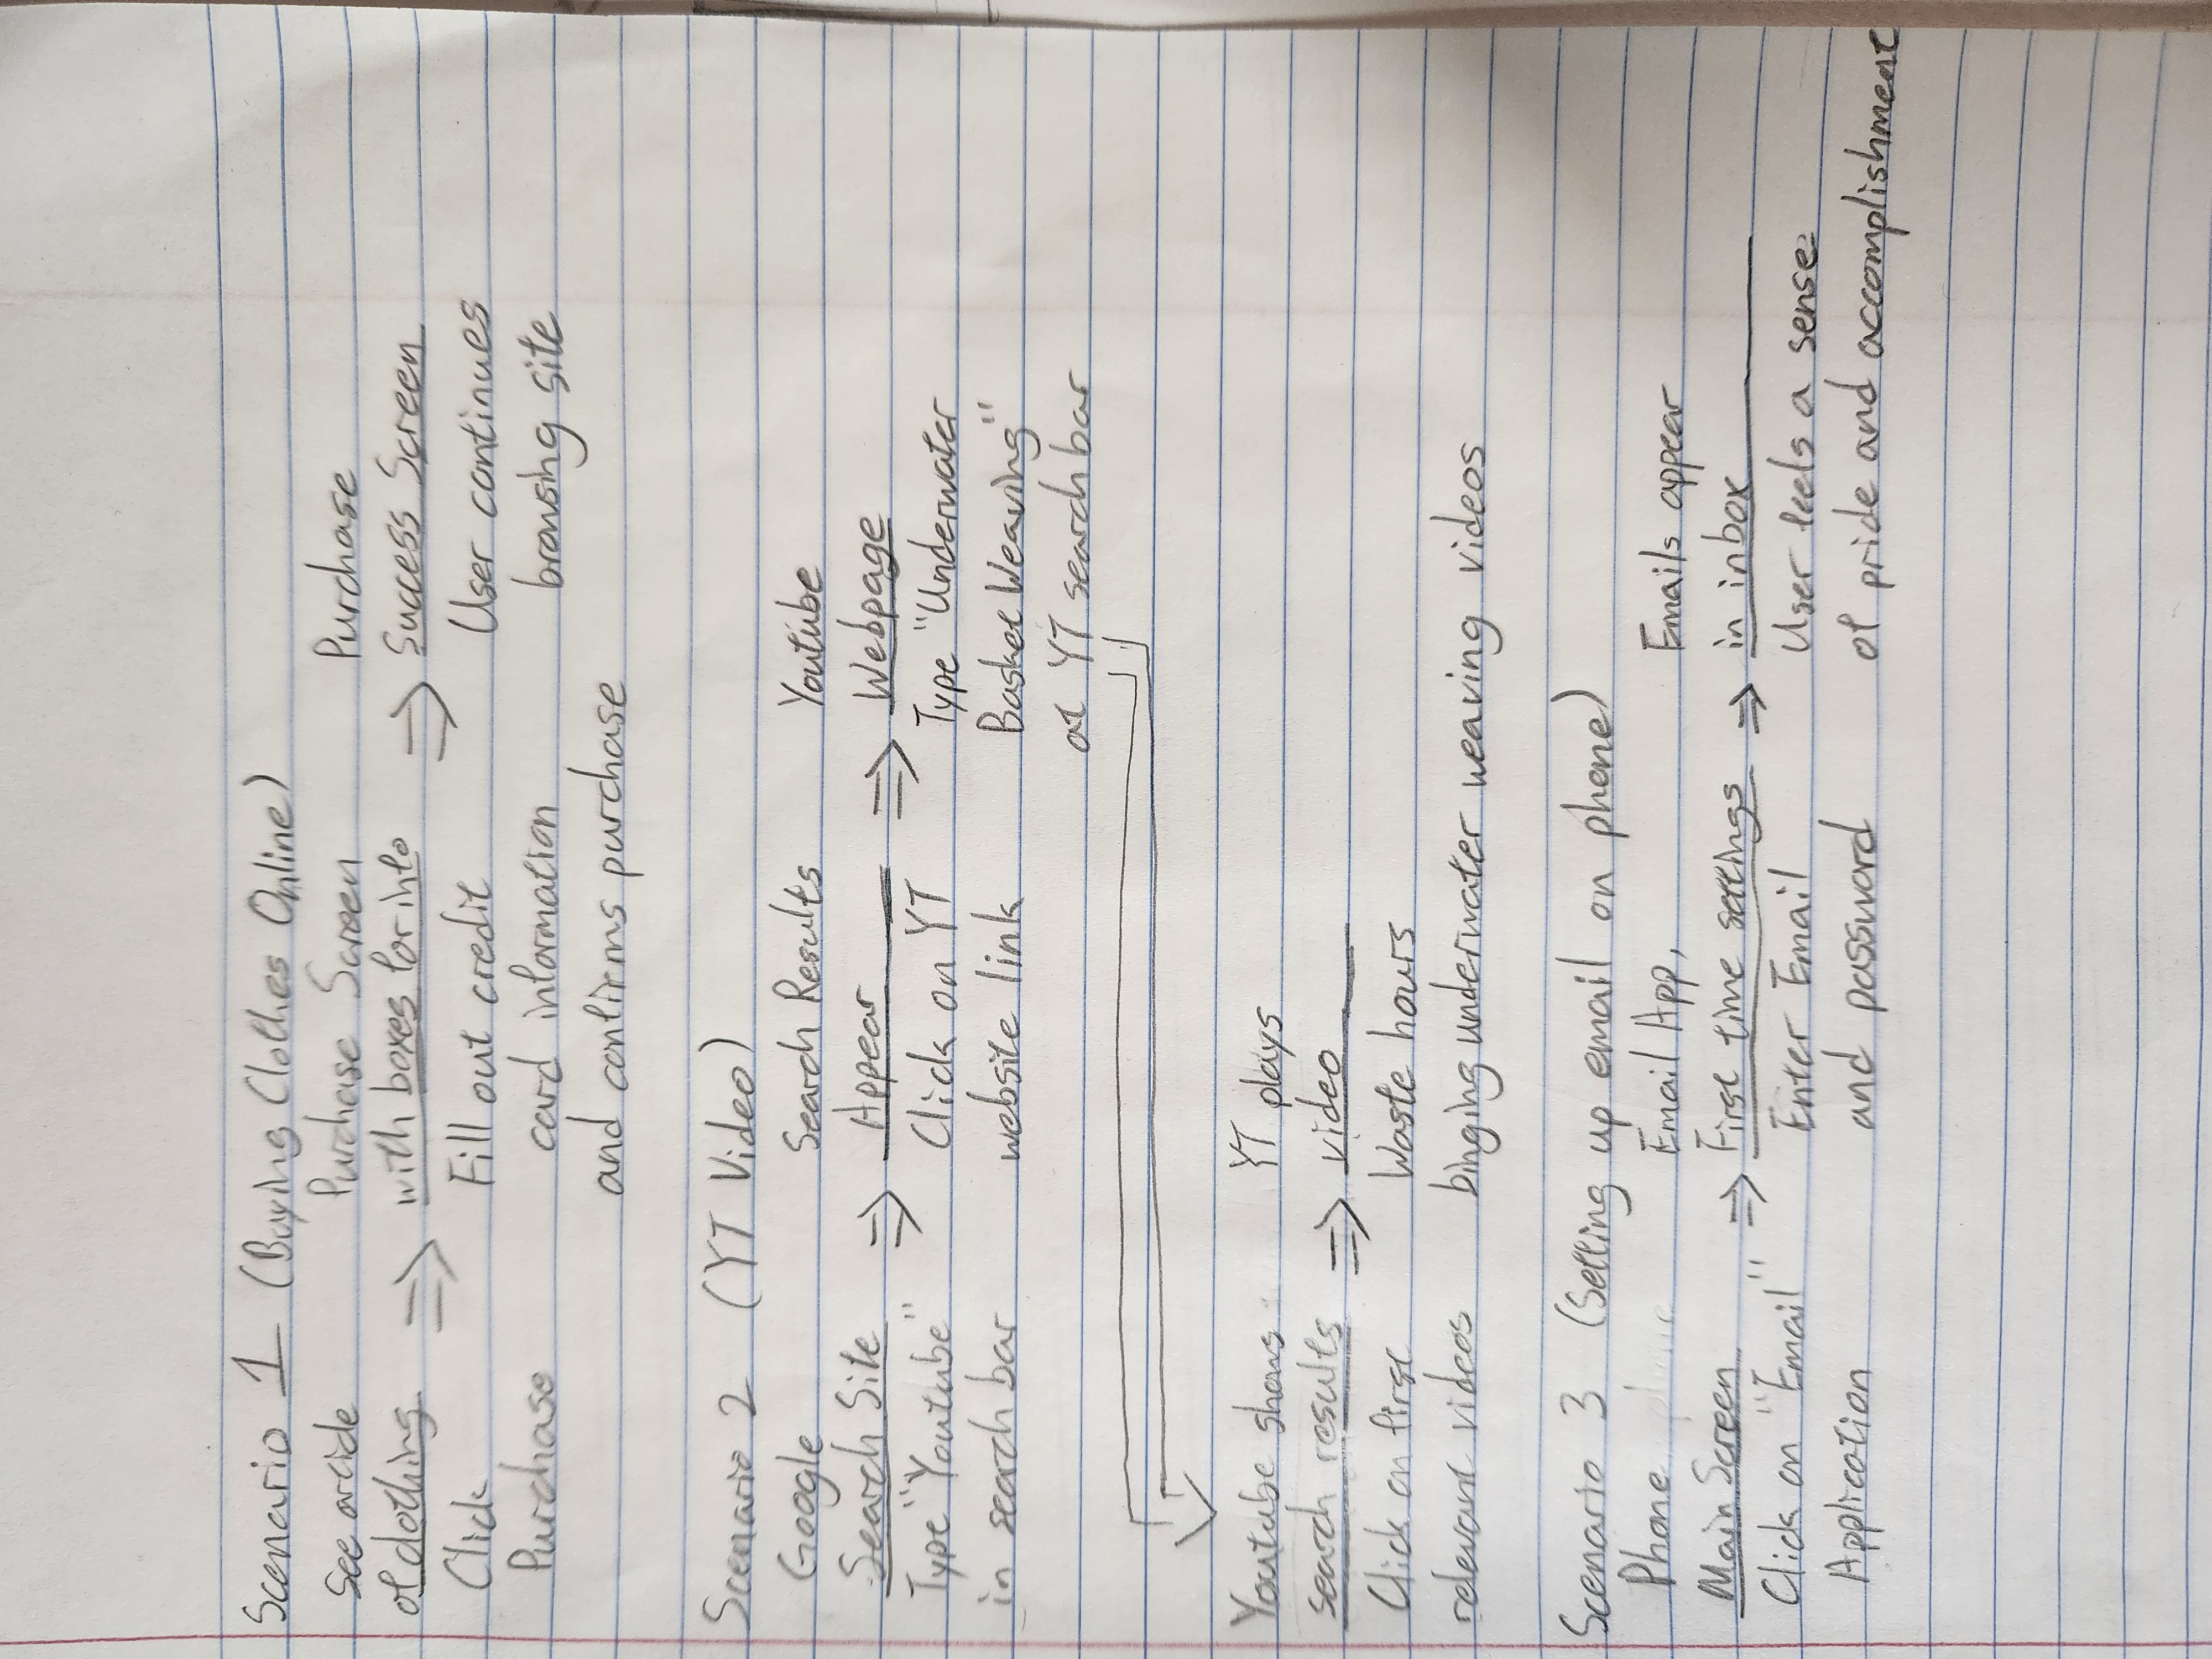 Scenario 1 (Buying Clothes Online)
See article
of clothing
Click
Purchase
⇒
Purchase Screen
with boxes for info
Fill out credit
card information
and confirms purchase
⇒
Purchase
Success Screen
User continues
browsing site
Scenario 2 (YT Video)
Google
Search Site
Type "Youtube"
in search bar
⇒
Search Results
Appear
Click on YT
website link
⇒
Youtube
Webpage
Type "Underwater
Basket Weaving"
at YT search bar
Youtube shows
search results
Click on first
relevant videos
⇒
YT plays
video
Waste hours
binging underwater weaving videos
Scenario 3 (Setting up email on phone)
Phone
Main Screen
Click on "Email"
Application
⇒
Email App,
First time settings
Enter Email
and password
⇒
Emails appear
in inbox
User feels a sense
of pride and accomplishment